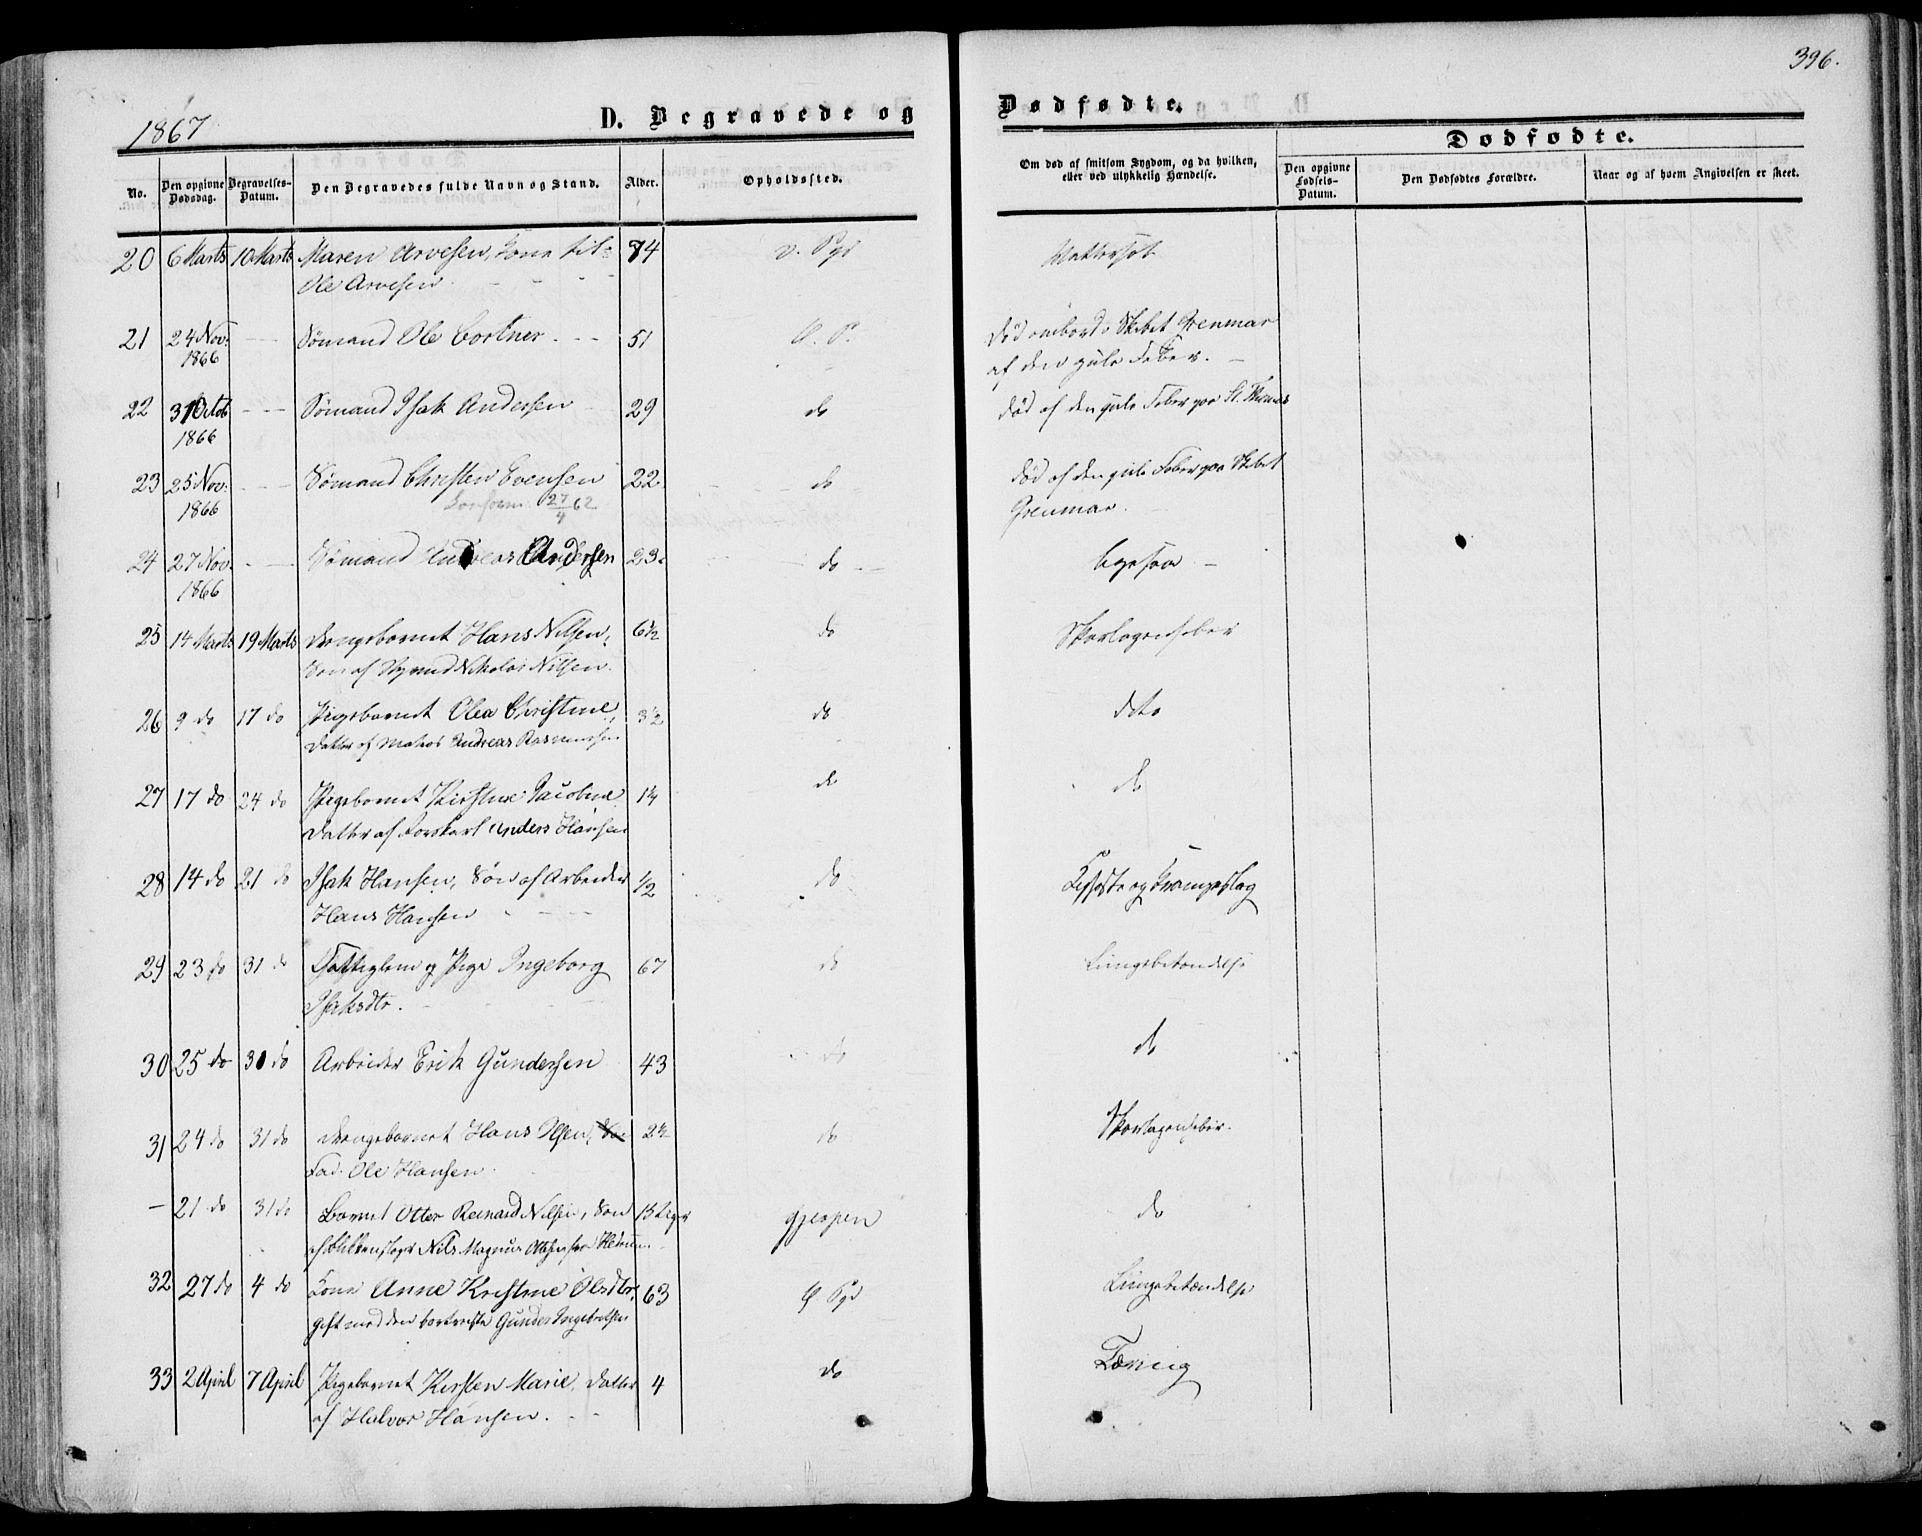 396.
1867
D. Begravede og
Dødfødte.
Dødfødte.
No.
Den opgivne Dødsdag.
Begravelses-Datum.
Den Begravedes fulde Navn og Stand.
Alder.
Opholdssted.
Om død af smitsom Sygdom, og da hvilken,
eller ved ulykkelig Hændelse.
Den opgivne Fødsels-Datum.
Den Dødfødtes Forældre.
Naar og af hvem Angivelsen er skeet.
20 6 Marts 10 Marts Maren Arvesen, Kone til 74
Ole Arvesen.
21 24 Nov: Sømand Ole Cortner. 51 Død ombord i Skibet Grenmar
1866 af den gule Feber.
22 31 Octob Sømand Isak Andersen 29 do død af den gule Feber paa St. Thomas
1866
23 25 Nov: Sømand Christen Evensen 22 do død af den gule Feber paa Skibet
1866 27/4 62 Grenmar.
24 27 Nov. Sømand Andreas Andersen 23 do ligesaa
1866
25 14 Marts 19 Marts Drengebarnet Hans Nilsen, 6½ do Skarlagensfeber
Søn af Nikolai Nilsen.
26 9 do 17 do Pigebarnet Olea Christine 3½ do dito
Datter af Matros Andreas Rasmussen
27 17 do 24 do Pigebarnet Kirstine Jacobine 1¼ do do
Datter af Anders Hansen
28 14 do 21 do Isak Hansen, Søn af Arbeider ½ do og Krampeslag
Hans Hansen
29 23 do 31 do Fattiglem og Pige Ingeborg 67 do Lungebetændelse
Isaksdtr.
30 25 do 30 do Arbeider Erik Gundersen 43 do do
31 24 do 31 do Drengebarnet Hans Olsen, 2½ do Skarlagensfeber.
Fad. Ole Hansen.
– 21 do 31 do Barnet Otter Reinard Nilsen, Søn 15 Uger Gjerpen do
af Nils Magnus
32 27 do 4 do Kone Anne Kristine Olsdtr. 63 Lungebetændelse
gift med den bortreiste Gunder Ingebretsen
33 2 April 7 April Pigebarnet Kirsten Marie, Datter 4 do Tæring
af Halvor Hansen.